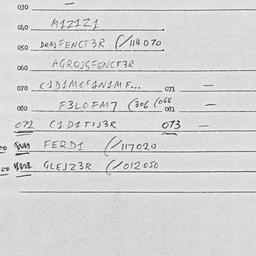 030 —
040 M1Z1Z1
050 DRAJFENCT3R (/114070
060 AGROJSFENCT3R
070 C1D1MCF1N1MF... 071 —
080 F3LOFM7 (306 (068 081
072 C1D1TIJ3R 073 —
FERD1 (/117020
GLEJZ3R (/012050